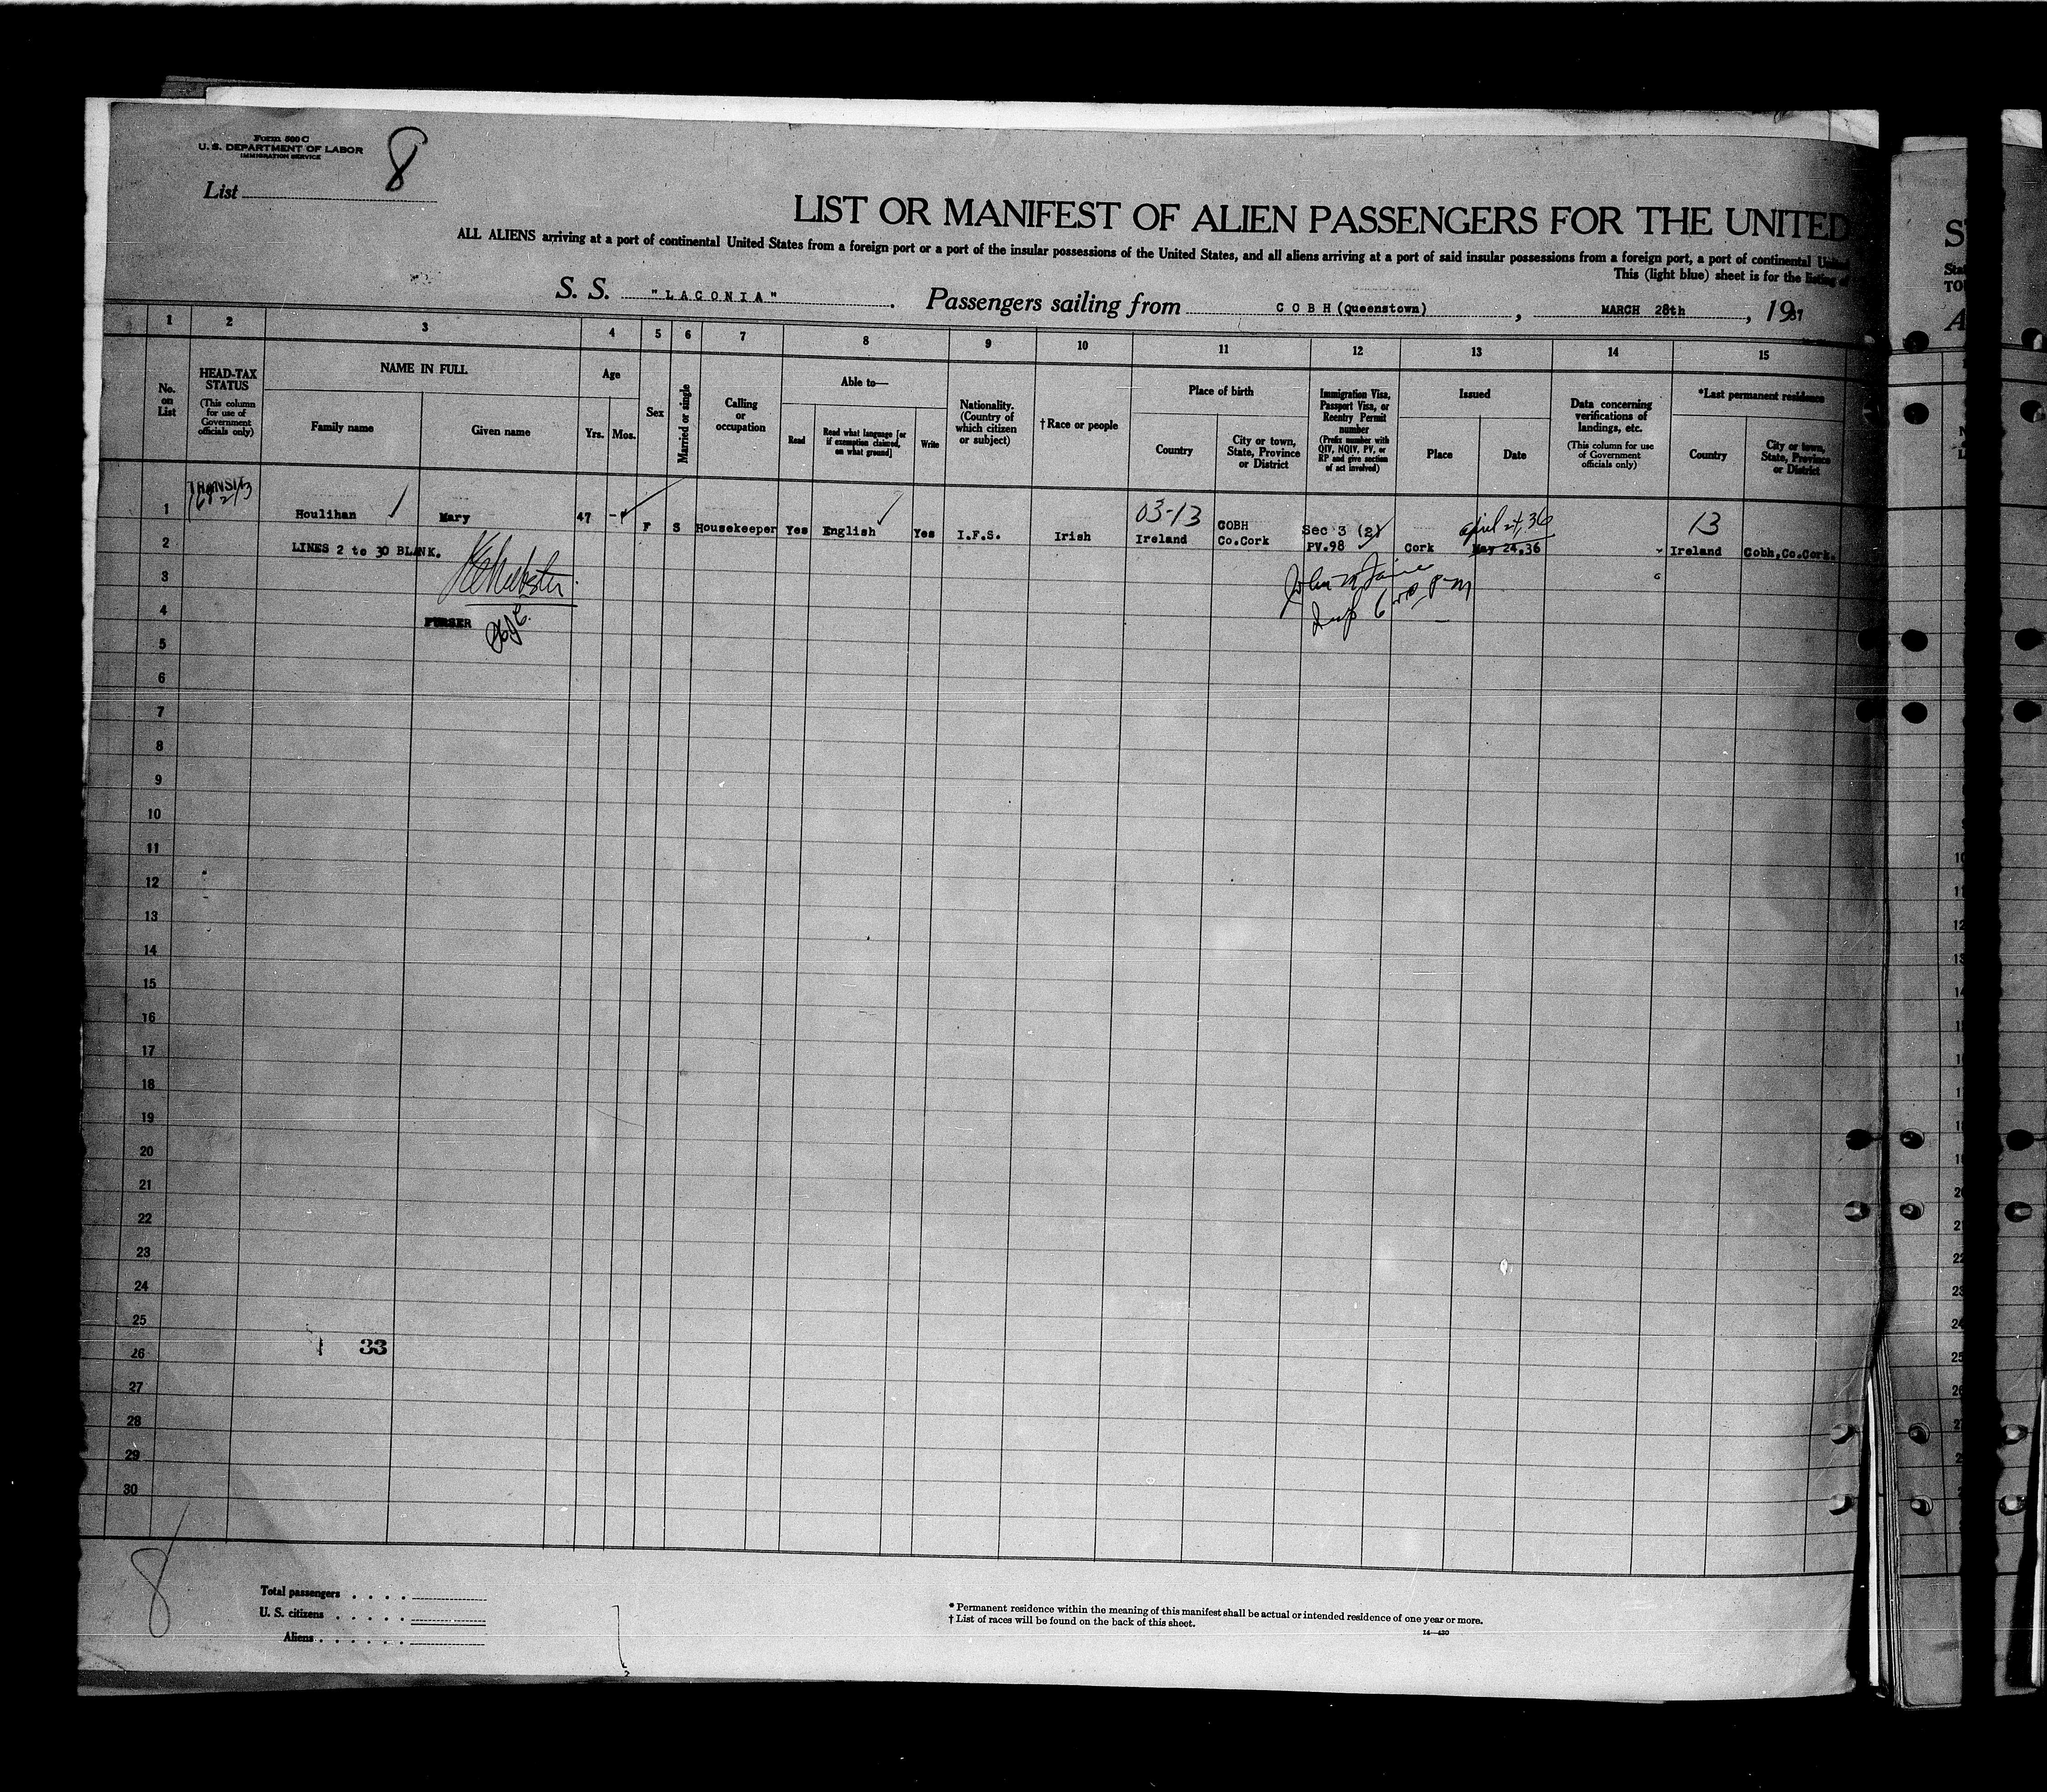 Form 500 C
U. S. DEPARTMENT OF LABOR
IMMIGRATION SERVICE
8
List
LIST OR MANIFEST OF ALIEN PASSENGERS FOR THE UNITED
ALL ALIENS arriving at a port of continental United States from a foreign port or a port of the insular possessions of the United States, and all aliens arriving at a port of said insular possessions from a foreign port, a port of continental United
This (light blue) sheet is for the listing of
S. S. "LACONIA" . Passengers sailing from COBH (Queenstown) , MARCH 28th , 1937
1 2 3 4 5 6 7 8 9 10 11 12 13 14 15
No. on List
HEAD-TAX STATUS
(This column for use of Government officials only)
NAME IN FULL
Family name
Given name
Age
Yrs.
Mos.
Sex
Married or single
Calling or occupation
Able to—
Read
Read what language [or if exemption claimed, on what ground]
Write
Nationality. (Country of which citizen or subject)
† Race or people
Place of birth
Country
City or town, State, Province or District
Immigration Visa, Passport Visa, or Reentry Permit number
(Prefix number with QIV, NQIV, PV, or RP and give section of act involved)
Issued
Place
Date
Data concerning verifications of landings, etc.
(This column for use of Government officials only)
*Last permanent residence
Country
City or town, State, Province or District
TRANSIT
03-13
april 24, 36
13
1 Houlihan Mary 47 - F S Housekeeper Yes English Yes I.F.S. Irish Ireland COBH Co.Cork Sec 3 (2) PV.98 Cork May 24.36 Ireland Cobh,Co.Cork.
2 LINES 2 to 30 BLANK.
3
4
PURSER
5
6
7
8
9
10
11
12
13
14
15
16
17
18
19
20
21
22
23
24
25
33
26
27
28
29
30
8
Total passengers . . . .
U. S. citizens . . . . .
Aliens . . . . . .
* Permanent residence within the meaning of this manifest shall be actual or intended residence of one year or more.
† List of races will be found on the back of this sheet.
14—430